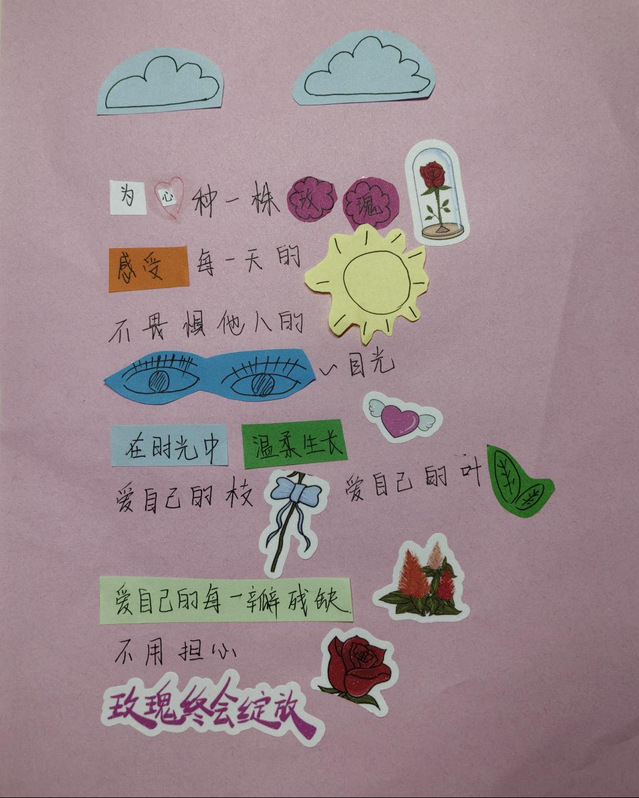 为心种一株玫瑰
感受每一天的
不畏惧他人的
目光
在时光中 温柔生长
爱自己的枝 爱自己的叶
爱自己的每一瓣残缺
不用担心
玫瑰终会绽放